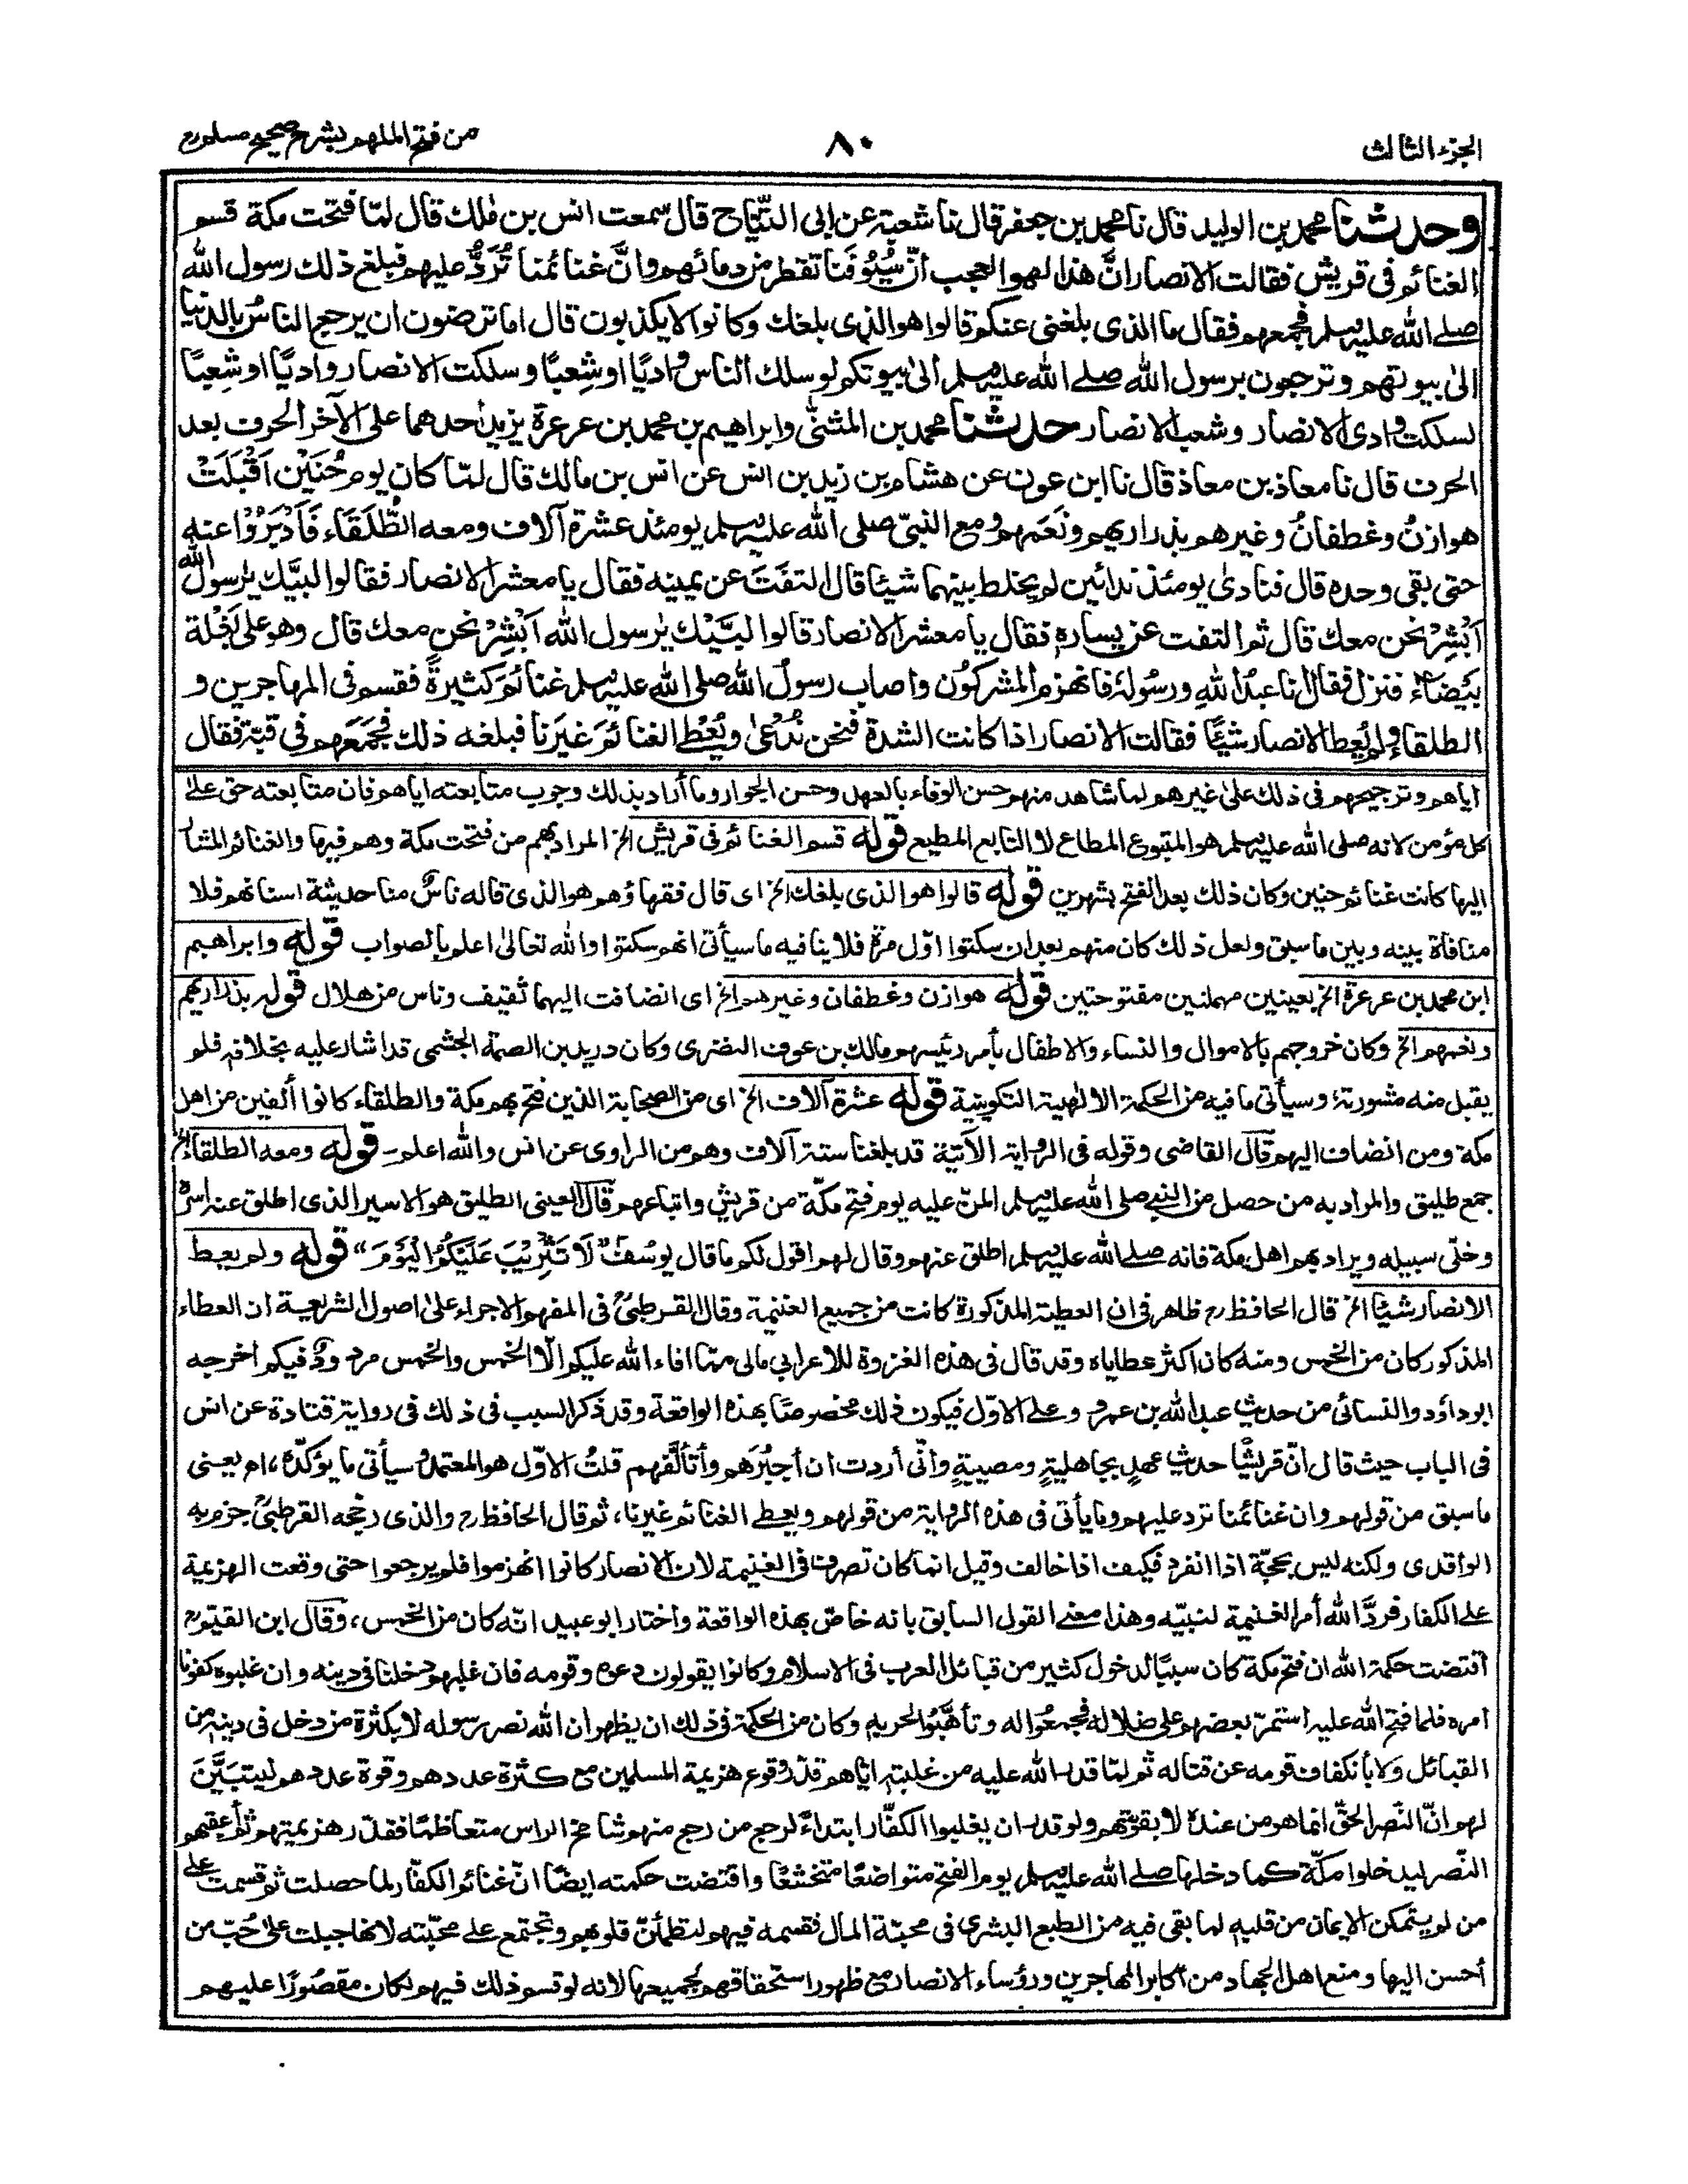 الجزء الثالث
٨٠
من فتح الملهم بشرح صحيح مسلم
وحدثنا محمد بن الوليد قال نا محمد بن جعفر قال نا شعبة عن ابى التيّاح قال سمعت انس بن مٰلك قال لمّا فتحت مكة قسم
الغنائم فى قريش فقالت الانصار انّ هذا لهو العجب انّ سُيُوفَنا تقطر من دمائهم وانّ غنائمنا تُرَدُّ عليهم فبلغ ذلك رسول الله
صلے الله عليه وسلم فجمعهم فقال ما الذى بلغنى عنكم قالوا هو الذى بلغك وكانوا لا يكذبون قال اما ترضون ان يرجع الناسُ بالدنيا
الىٰ بيوتهم وترجعون برسول الله صلے الله عليه وسلم الىٰ بيوتكم لو سلك الناس واديًا او شِعبًا وسلكت الانصار واديًا او شِعبًا
لسلكت وادى الانصار وشعب الانصار حدثنا محمد بن المثنّٰى وابراهيم بن محمد بن عرعرة يزيد احدهما على الآخر الحرف بعد
الحرف قال نا معاذ بن معاذ قال نا ابن عون عن هشام بن زيد بن انس عن انس بن مالك قال لمّا كان يوم حُنَيْن اَقْبَلَتْ
هوازنُ وغطفانُ وغيرهم بذراريهم ونَعَمهم ومع النبىّ صلى الله عليه وسلم يومئذ عشرة آلاف ومعه الطُّلَقَاء فَاَدْبَرُوْا عنه
حتى بقى وحده قال فنادىٰ يومئذ ندائين لم يخلط بينهما شيئا قال التفَتَ عن يمينه فقال يا معشر الانصار فقالوا لبيّك يٰرسول الله
اَبْشِرْ نحن معك قال ثم التفت عن يساره فقال يا معشر الانصار قالوا لبَّيْك يٰرسول الله اَبْشِرْ نحن معك قال وهو على بَغْلة
بَيْضَاء فنزل فقال انا عبدُ اللهِ ورسُولهٗ فانهزم المشركُون واصاب رسولُ الله صلى الله عليه وسلم غنائمَ كثيرةً فقسم فى المهاجرين و
الطلقاء ولم يُعط الانصار شيئًا فقالت الانصار اذا كانت الشدة فنحن نُدْعىٰ ويُعْطٰے الغنائمَ غيرَنا فبلغه ذلك فجَمَعَهم فى قبّة فقال
اياهم وترجيحهم فى ذلك علىٰ غيرهم لما شاهد منهم حسن الوفاء بالعهد وحسن الجوار وما أراد بذلك وجوب متابعته اياهم فان متابعته حق علىٰ
كل مؤمن لانه صلى الله عليه وسلم هو المتبوع المطاع لا التابع المطيع قوله قسم الغنائم فى قريش الخ المراد بهم من فتحت مكة وهم فيها والغنائم المشار
اليها كانت غنائم حنين وكان ذلك بعد الفتح بشهرين قوله قالوا هو الذى بلغك الخ اى قال فقهاؤهم هو الذى قاله ناسٌ منا حديثة اسنانهم فلا
منافاة بينه وبين ما سبق ولعل ذلك كان منهم بعد ان سكتوا اوّل مرّة فلا ينافيه ما سيأتى انهم سكتوا والله تعالىٰ اعلم بالصواب قوله وابراهيم
ابن محمد بن عرعرة الخ بعينين مهملتين مفتوحتين قوله هوازن وغطفان وغيرهم الخ اى انضافت اليهما ثقيف وناس من هلال قوله بذراريهم
ونعمهم الخ وكان خروجهم بالاموال والنساء والاطفال بأمر رئيسهم مالك بن عوف النضرى وكان دريد بن الصمة الجشمى قد اشار عليه بخلافه فلم
يقبل منه مشورته، وسيأتى ما فيه من الحكمة الالٰهية التكوينية قوله عشرة آلاف الخ اى من الصحابة الذين فتح بهم مكة والطلقاء كانوا ألفين من اهل
مكة ومن انضاف اليهم قال القاضى وقوله فى الرواية الآتية قد بلغنا ستة آلاف وهم من الراوى عن انس والله اعلم۔ قوله ومعه الطلقاء الخ
جمع طليق والمراد به من حصل من النبى صلى الله عليه وسلم المنّ عليه يوم فتح مكّة من قريش واتباعهم قال العينى الطليق هو الاسير الذى اطلق عنه اسره
وخلّى سبيله ويراد بهم اهل مكة فانه صلے الله عليه وسلم اطلق عنهم وقال لهم اقول لكم ما قال يوسفُ "لَا تَثْرِيْبَ عَلَيْكُمُ الْيَوْمَ" قوله ولم يعط
الانصار شيئا الخ قال الحافظ رح ظاهر فى ان العطية المذكورة كانت من جميع الغنيمة وقال القرطبىؒ فى المفهم الاجراء علىٰ اصول الشريعة ان العطاء
المذكور كان من الخمس ومنه كان اكثر عطاياه وقد قال فى هذه الغزوة للاعرابى مالى ممّا افاء الله عليكم الّا الخمس والخمس مردودٌ فيكم اخرجه
ابو داؤد والنسائى من حديث عبد الله بن عمرو وعلے الاوّل فيكون ذلك مخصوصًا بهذه الواقعة وقد ذكر السبب فى ذلك فى رواية قتادة عن انس
فى الباب حيث قال انّ قريشًا حديث عهدٍ بجاهليةٍ ومصيبةٍ وانّى أردت ان أجبُرَهم وأتألّفهم قلتُ الاوّل هو المعتمد وسيأتى ما يؤكّده، ام يعنى
ما سبق من قولهم وان غنائمنا ترد عليهم وما يأتى فى هذه الرواية من قولهم ويعطے الغنائم غيرنا، ثم قال الحافظ رح والذى رجّحه القرطبىؒ جزم به
الواقدى ولكنه ليس بحجّة اذا انفرد فكيف اذا خالف وقيل انما كان تصرف فى الغنيمة لان الانصار كانوا انهزموا فلم يرجعوا حتى وقعت الهزيمة
على الكفار فردَّ الله أمر الغنيمة لنبيّه وهذا معنے القول السابق بانه خاصّ بهذه الواقعة واختار ابو عبيد انّه كان من الخمس، وقال ابن القيّم رح
اقتضت حكمة الله ان فتح مكة كان سببًا لدخول كثير من قبائل العرب فى الاسلام وكانوا يقولون دعوه وقومه فان غلبهم دخلنا فى دينه وان غلبوه كفونا
امره فلما فتح الله عليه استمرّ بعضهم على ضلاله فجمعُوا له وتأهّبُوا لحربه وكان من الحكمة فى ذلك ان يظهر ان الله نصر رسوله لا بكثرة من دخل فى دينه من
القبائل ولا بأنكفاف قومه عن قتاله ثم لمّا قدر الله عليه من غلبته ايّاهم قدّر وقوع هزيمة المسلمين مع كثرة عددهم وقوة عددهم ليتبَيَّنَ
لهم انّ النّصر الحقّ انما هو من عنده لا بقوّتهم ولو قدر ان يغلبوا الكفّار ابتداءً لرجع من رجع منهم شامخ الراس متعاظمًا فقدّر هزيمتهم ثم أعقبهم
النّصر ليدخلوا مكّة كما دخلها صلے الله عليه وسلم يوم الفتح متواضعًا متخشّعًا واقتضت حكمته ايضًا انّ غنائم الكفّار لما حصلت ثم قسمت علے
من لم يتمكن الايمان من قلبه لما بقى فيه من الطبع البشرى فى محبّة المال فقسمه فيهم لتطمئنّ قلوبهم وتجتمع علے محبّته لانها جبلت علىٰ حُبّ من
أحسن اليها ومنع اهل الجهاد من اكابر المهاجرين ورؤساء الانصار مع ظهور استحقاقهم لجميعها لانه لو قسم ذلك فيهم لكان مقصُورًا عليهم